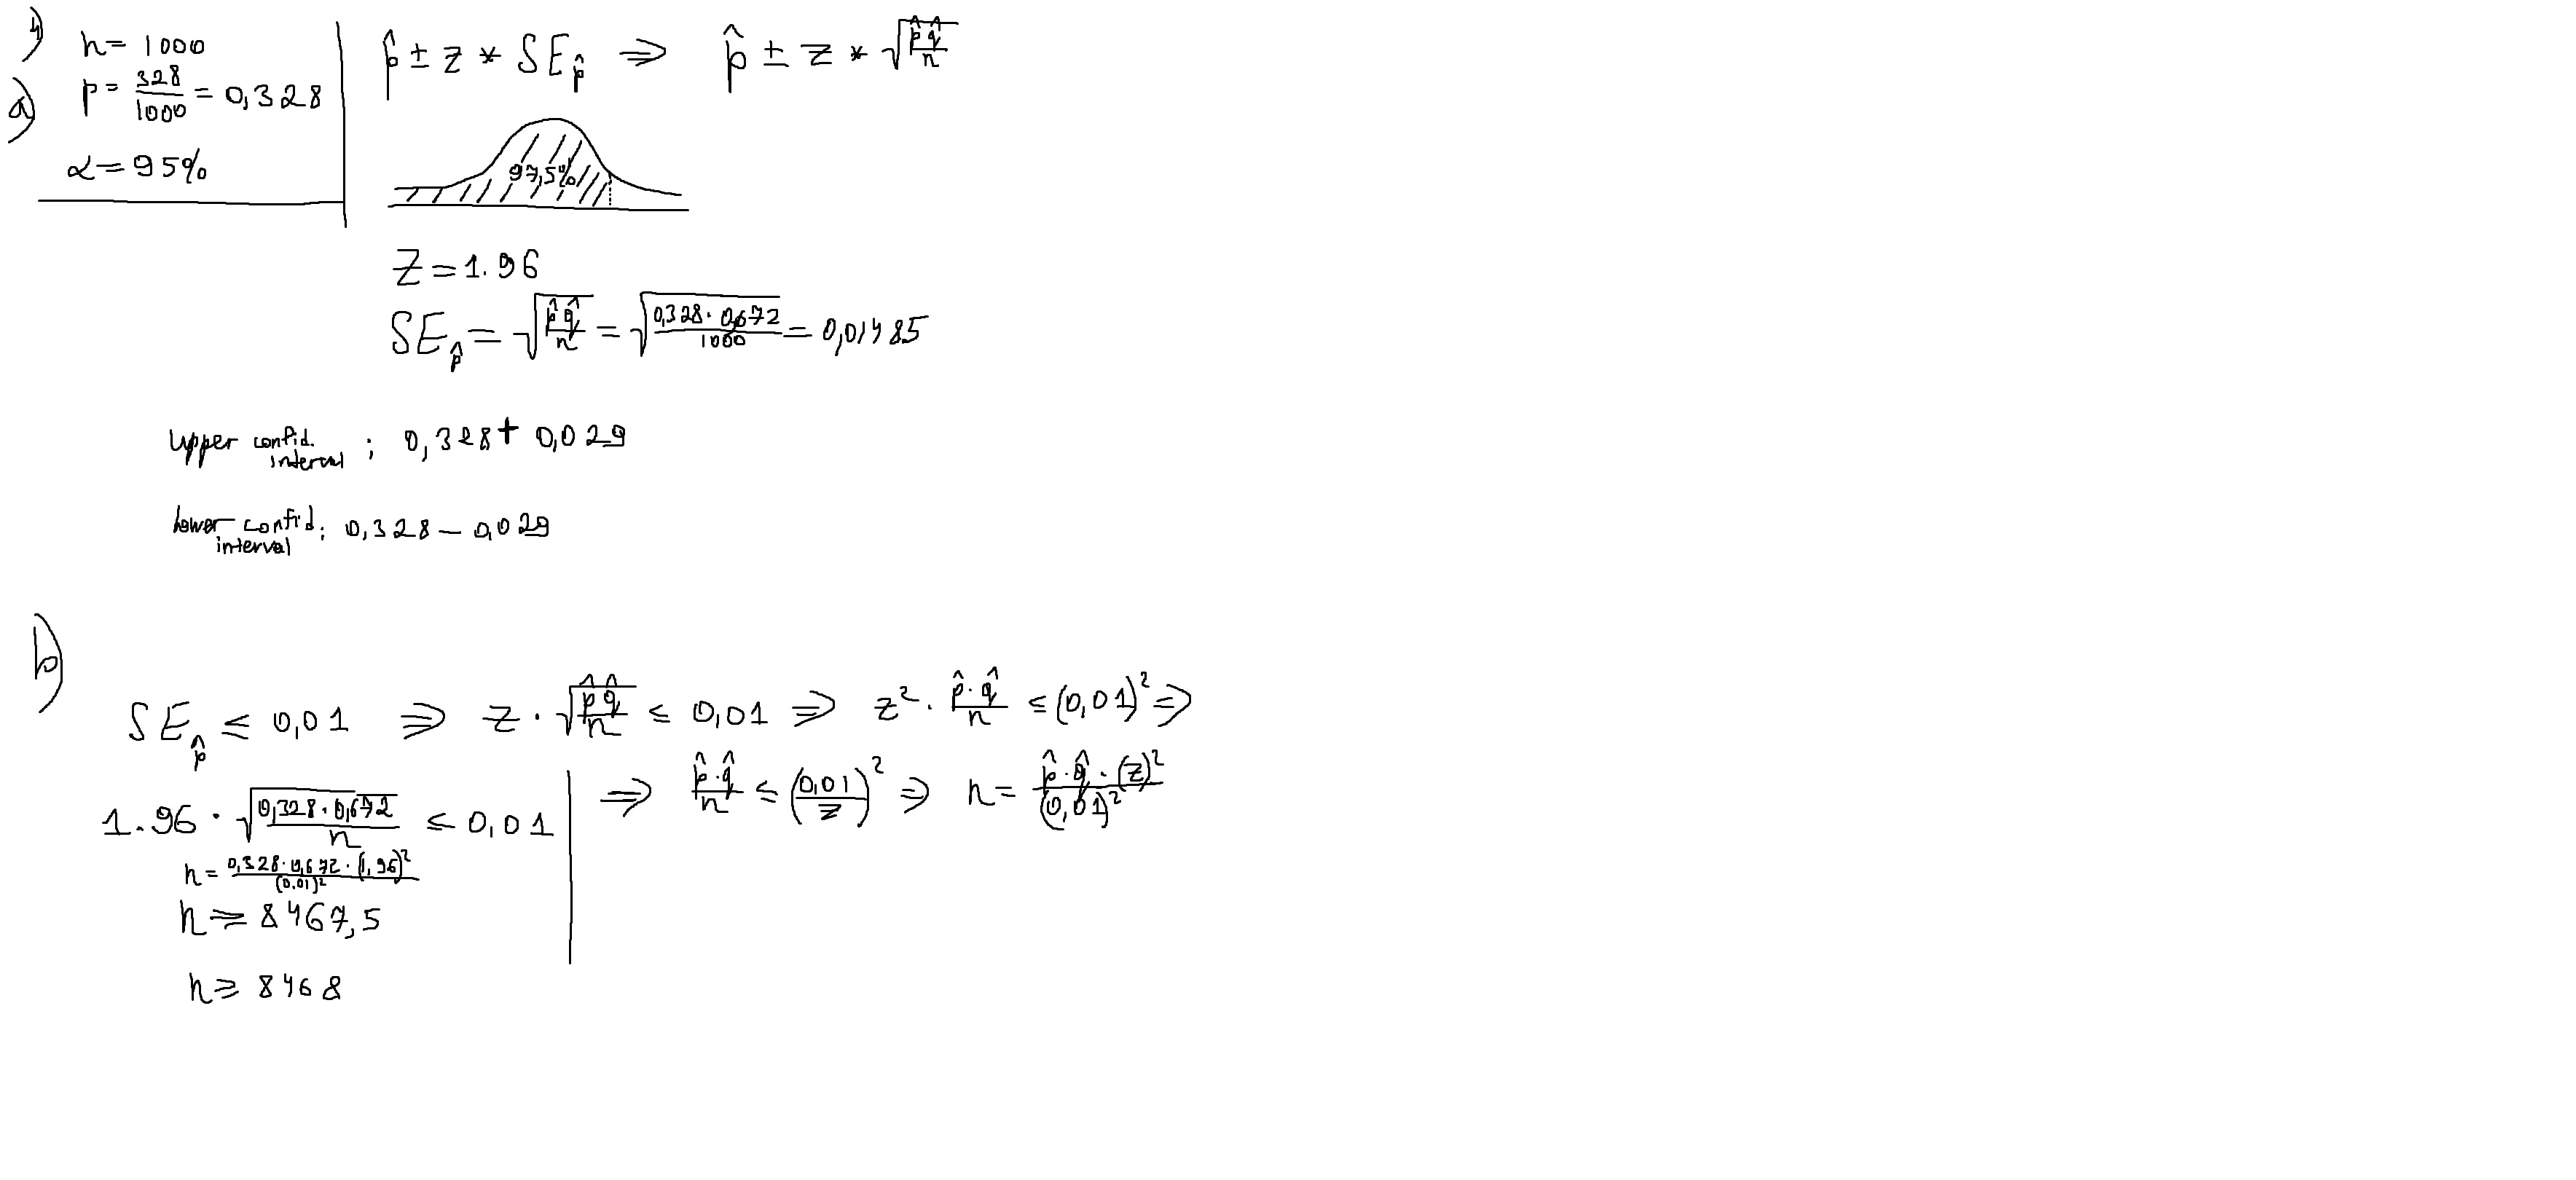 1)
a)
n = 1000
p = 328/1000 = 0,328
α = 95%
p̂ ± z * SE_p̂ ⇒ p̂ ± z * √(p̂q̂/n)
97,5%
Z = 1.96
SE_p̂ = √(p̂q̂/n) = √(0,328 · 0,672/1000) = 0,01485
Upper confid. interval ; 0,328 + 0,029
Lower confid. interval : 0,328 – 0,029
b)
SE_p̂ ≤ 0,01 ⇒ z · √(p̂q̂/n) ≤ 0,01 ⇒ z² · p̂·q̂/n ≤ (0,01)² ⇒
⇒ p̂·q̂/n ≤ (0,01/z)² ⇒ n = p̂·q̂·(z)²/(0,01)²
1.96 · √(0,328 · 0,672/n) ≤ 0,01
n = 0,328·0,672·(1,96)²/(0,01)²
n ≥ 8467,5
n ≥ 8468